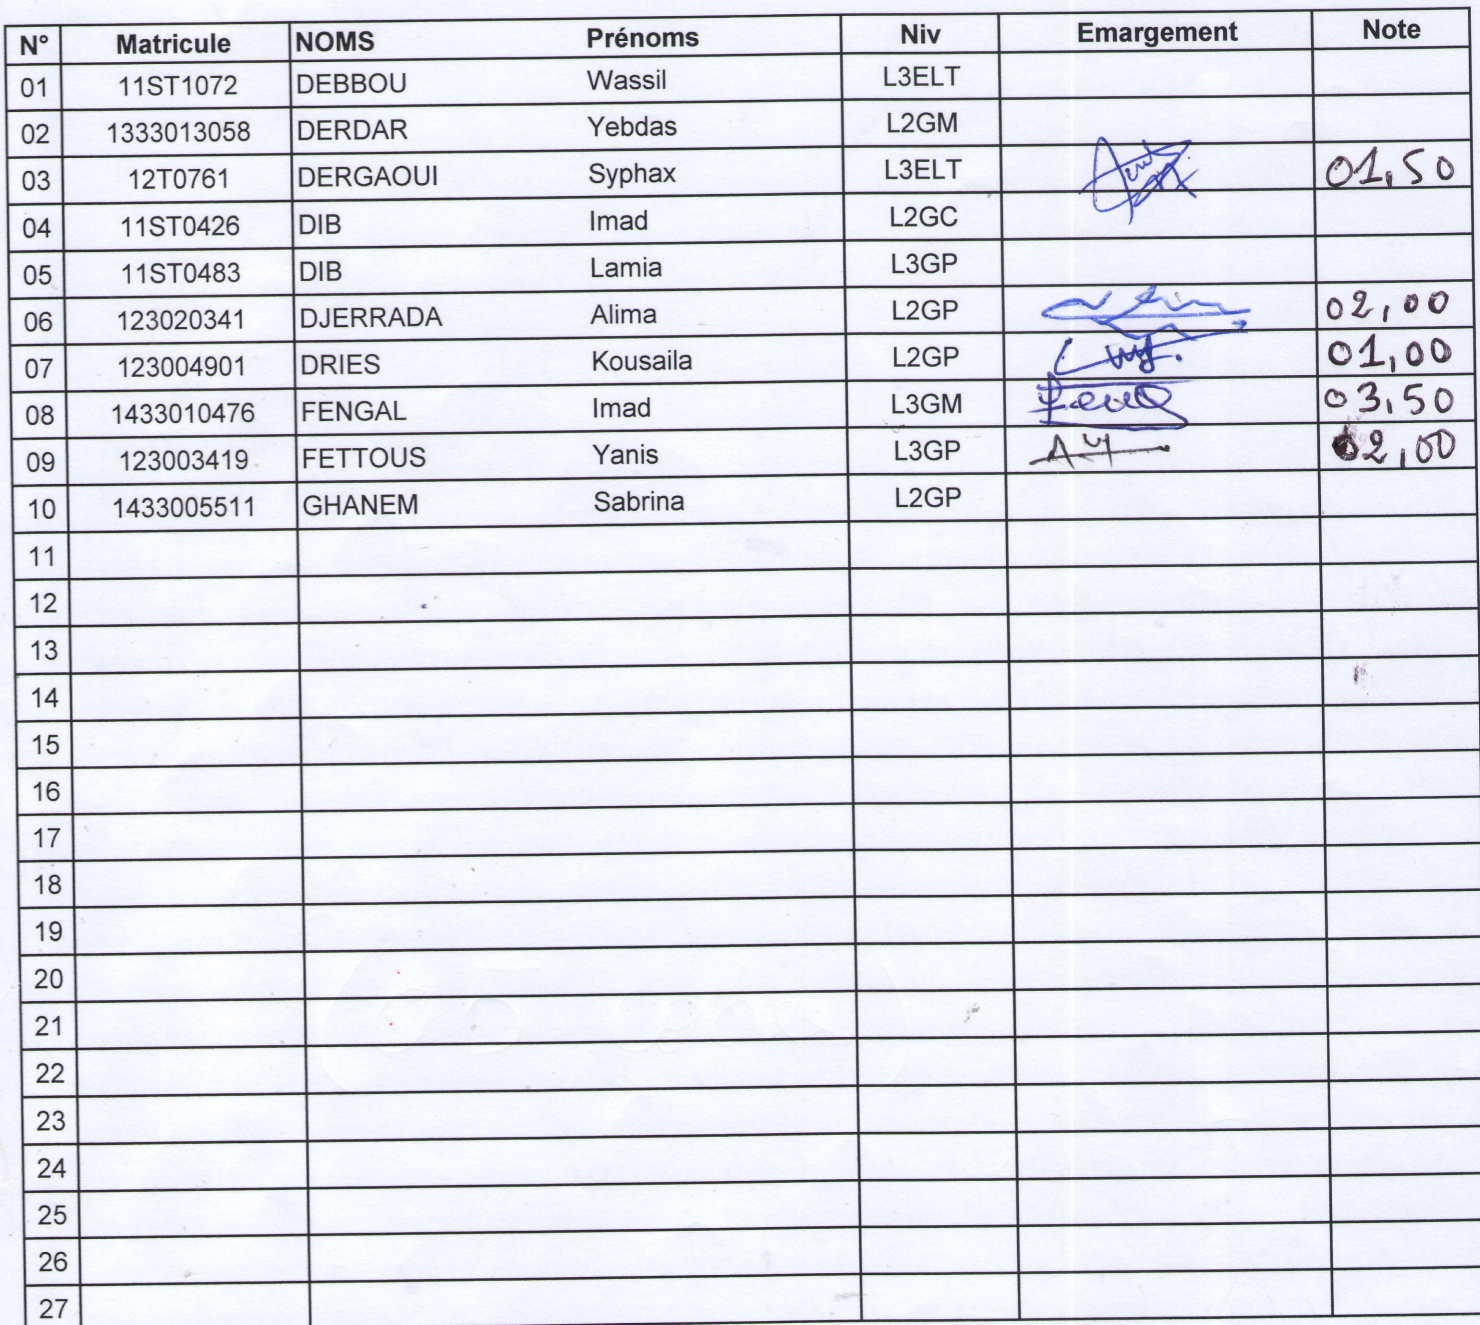 N° Matricule NOMS Prénoms Niv Emargement Note
01 11ST1072 DEBBOU Wassil L3ELT
02 1333013058 DERDAR Yebdas L2GM
03 12T0761 DERGAOUI Syphax L3ELT 01,50
04 11ST0426 DIB Imad L2GC
05 11ST0483 DIB Lamia L3GP
06 123020341 DJERRADA Alima L2GP 02,00
07 123004901 DRIES Kousaila L2GP 01,00
08 1433010476 FENGAL Imad L3GM 03,50
09 123003419 FETTOUS Yanis L3GP 02,00
10 1433005511 GHANEM Sabrina L2GP
11
12
13
14
15
16
17
18
19
20
21
22
23
24
25
26
27